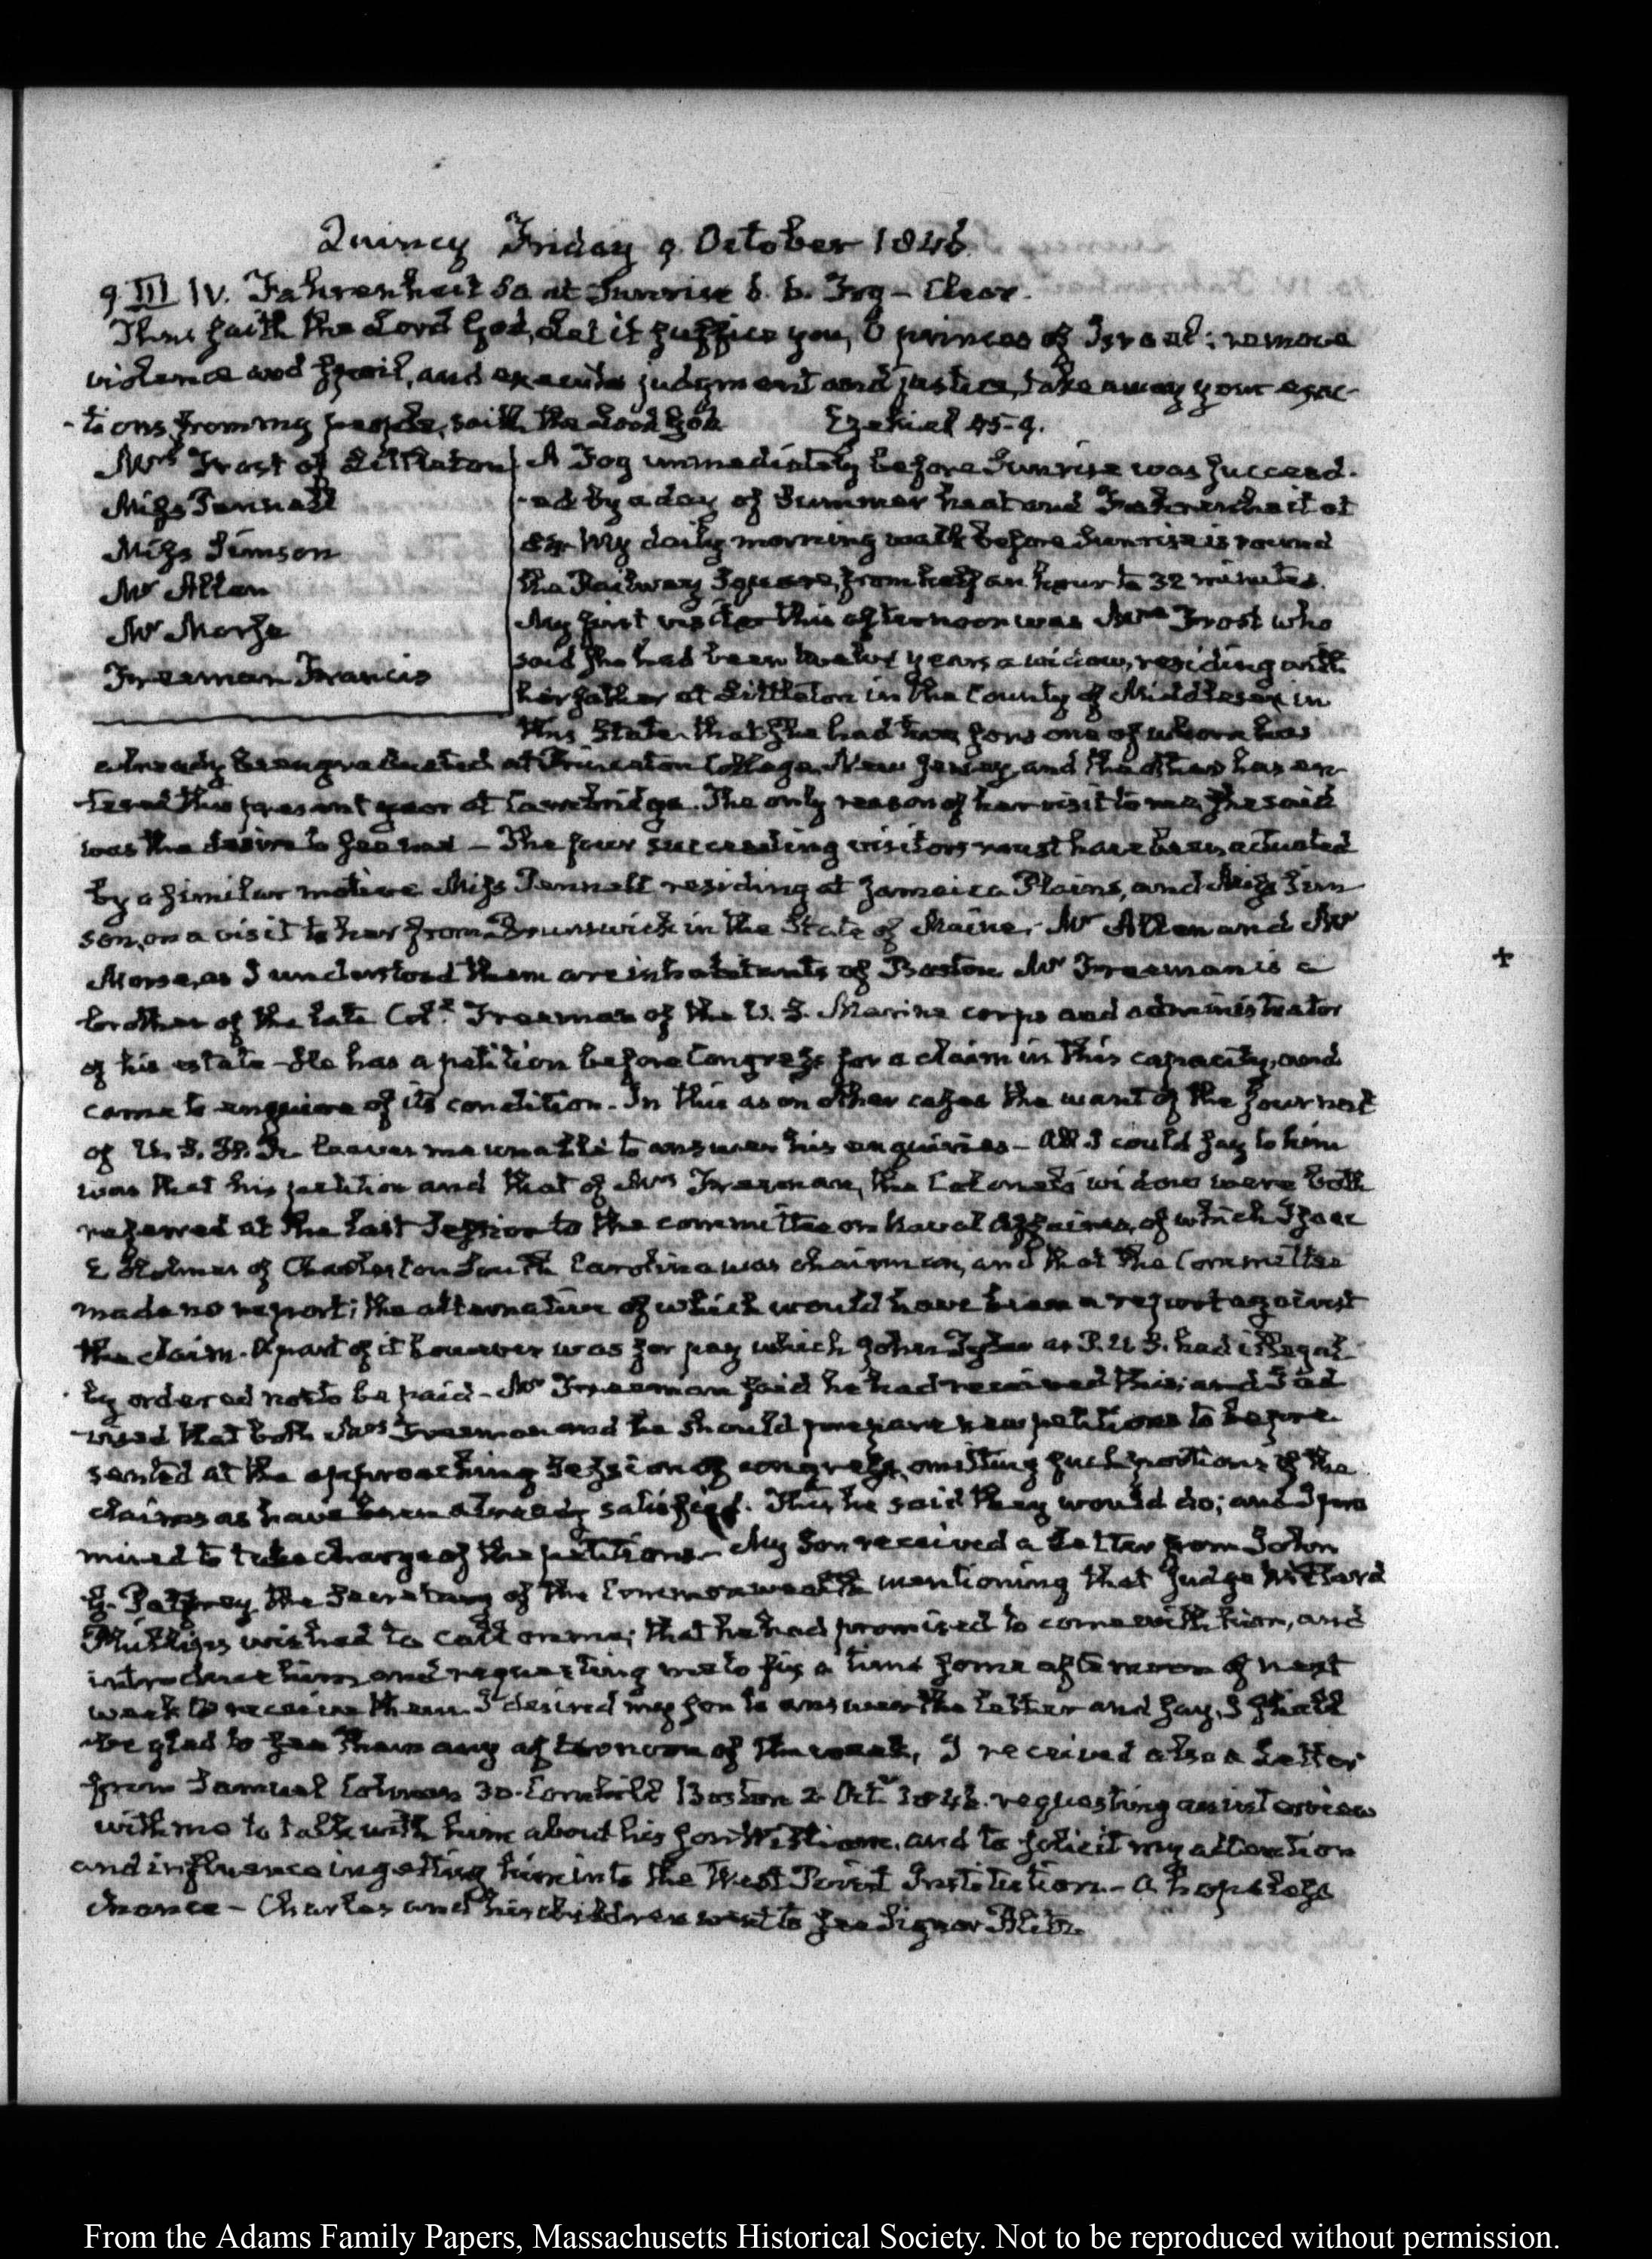 Quincy Friday 9 October 1846.
9. III IV. Fahrenheit 50 at Sunrise 6. 6. Fog – Clear.
Thus saith the Lord God, Let it suffice you, O princes of Israel: remove
violence and spoil, and execute judgment and justice, take away your exac-
-tions from my people, saith the Lord God Ezekiel 45-9.
Mrs Frost of Littleton
Miss Pennell
Miss Simson
Mr Allen
Mr Morse
Freeman Francis
A Fog immediately before Sunrise was succeed-
-ed by a day of Summer heat and Fahrenheit at
My daily morning walk before Sunrise is round
the Railway Square, from half an hour to 32 minutes.
My first visiter this afternoon was Mrs Frost who
said she had been twelve years a widow, residing with
her father at Littleton in the County of Middlesex in
this State. that she had two sons one of whom has
already been graduated at Princeton College, New Jersey, and the other has en-
-tered this present year at Cambridge. The only reason of her visit to me, she said
was the desire to see me – The four succeeding visitors must have been actuated
by a similar motive Miss Pennell residing at Jamaica Plains, and Miss Sim
son, on a visit to her from Brunswick in the State of Maine, Mr Allen and Mr
Morse, as I understood them are inhabitants of Boston Mr Freeman is a
brother of the late Col. Freeman of the U. S. Marine corps and administrator
of his estate – He has a petition before Congress for a claim in this capacity, and
came to enquire of its condition – In this as on other cases the want of the journal
of U. S. H. R. leaves me unable to answer his enquiries – All I could say to him
was that his petition and that of Mrs Freeman, the Colonel's widow were both
referred at the last Session to the committee on Naval Affairs, of which Isaac
E Holmes of Charleston South Carolina was chairman, and that the Committee
made no report; the alternative of which would have been a report against
the claim. A part of it however was for pay which John Tyler as P. U S. had illegal
ly ordered not to be paid – Mr Freeman said he had received this; and I ad
-vised that both Mrs Freeman and he should prepare new petitions to be pre-
sented at the approaching Session of Congress, omitting such portions of the
claims as have been already satisfied. This he said they would do; and I pro
mised to take charge of the petitions – My Son received a Letter from John
G. Palfrey the Secretary of the Commonwealth mentioning that Judge Willard
Phillips wished to call on me; that he had promised to come with him, and
introduce him and requesting me to fix a time some afternoon of next
week to receive them. I desired my son to answer the letter and say, I shall
be glad to see them any afternoon of the week, I received also a Letter
from Samuel Colman 30. Cornhill Boston 2 Oct. 1846. requesting an interview
with me to talk with him about his son William, and to solicit my attention
and influence in getting him into the West Point Institution – A hopeless
chance – Charles and his children went to see Signor Blitz.
+
From the Adams Family Papers, Massachusetts Historical Society. Not to be reproduced without permission.